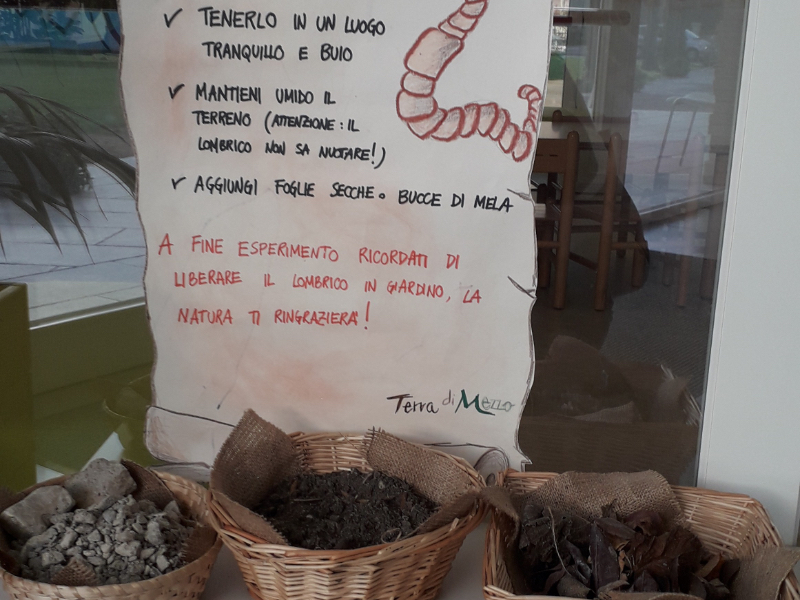 ✓ TENERLO IN UN LUOGO
TRANQUILLO E BUIO
✓ MANTIENI UMIDO IL
TERRENO (ATTENZIONE: IL
LOMBRICO NON SA NUOTARE!)
✓ AGGIUNGI FOGLIE SECCHE O BUCCE DI MELA
A FINE ESPERIMENTO RICORDATI DI
LIBERARE IL LOMBRICO IN GIARDINO, LA
NATURA TI RINGRAZIERA'!
Terra di Mezzo